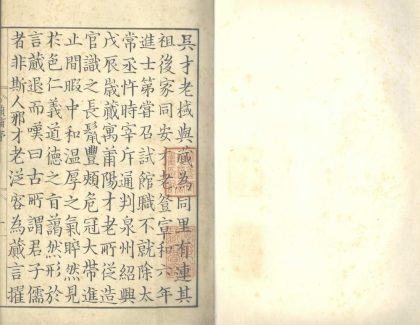 吳才老棫與蕆為同里有連其
祖後家同安才老登宣和六年
進士第嘗召試館職不就除太
常丞忤時宰斥通判泉州紹興
戊辰歲蕆寓莆陽才老所從造
官識之長鬛豐頰危冠大帶進
止間暇中和温厚之氣睟然見
於色仁義道德之音藹然形於
言蕆退而嘆曰古所謂君子儒
者非斯人邪才老從容為蕆言擢